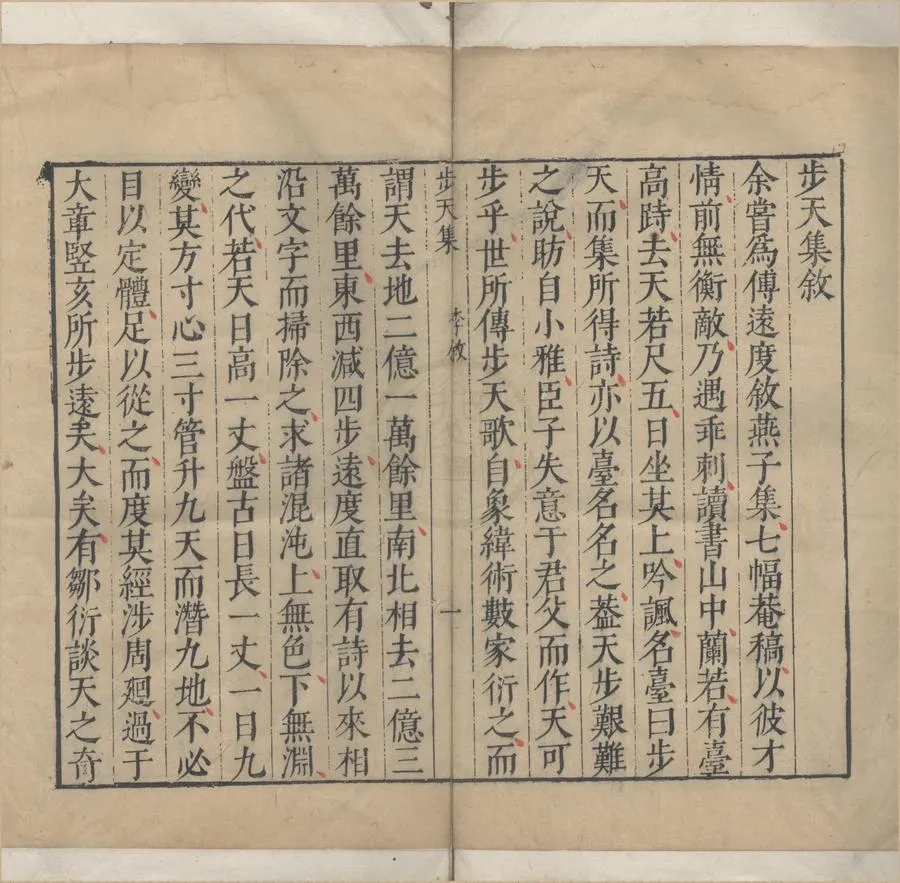 步天集敘
余嘗為傅遠度敘燕子集七幅菴稿以彼才
情前無衡敵乃遇乖刺讀書山中蘭若有臺
高跱去天若尺五日坐其上吟諷名臺曰步
天而集所得詩亦以臺名名之葢天步艱難
之說昉自小雅臣子失意于君父而作天可
步乎世所傳步天歌自象緯術數家衍之而
步天集 李敘 一
謂天去地二億一萬餘里南北相去二億三
萬餘里東西減四步遠度直取有詩以來相
沿文字而掃除之求諸混沌上無色下無淵
之代若天日高一丈盤古日長一丈一日九
變其方寸心三寸管升九天而潛九地不必
目以定體足以從之而度其經涉周廻過于
大章竪亥所步遠矣大矣有鄒衍談天之奇